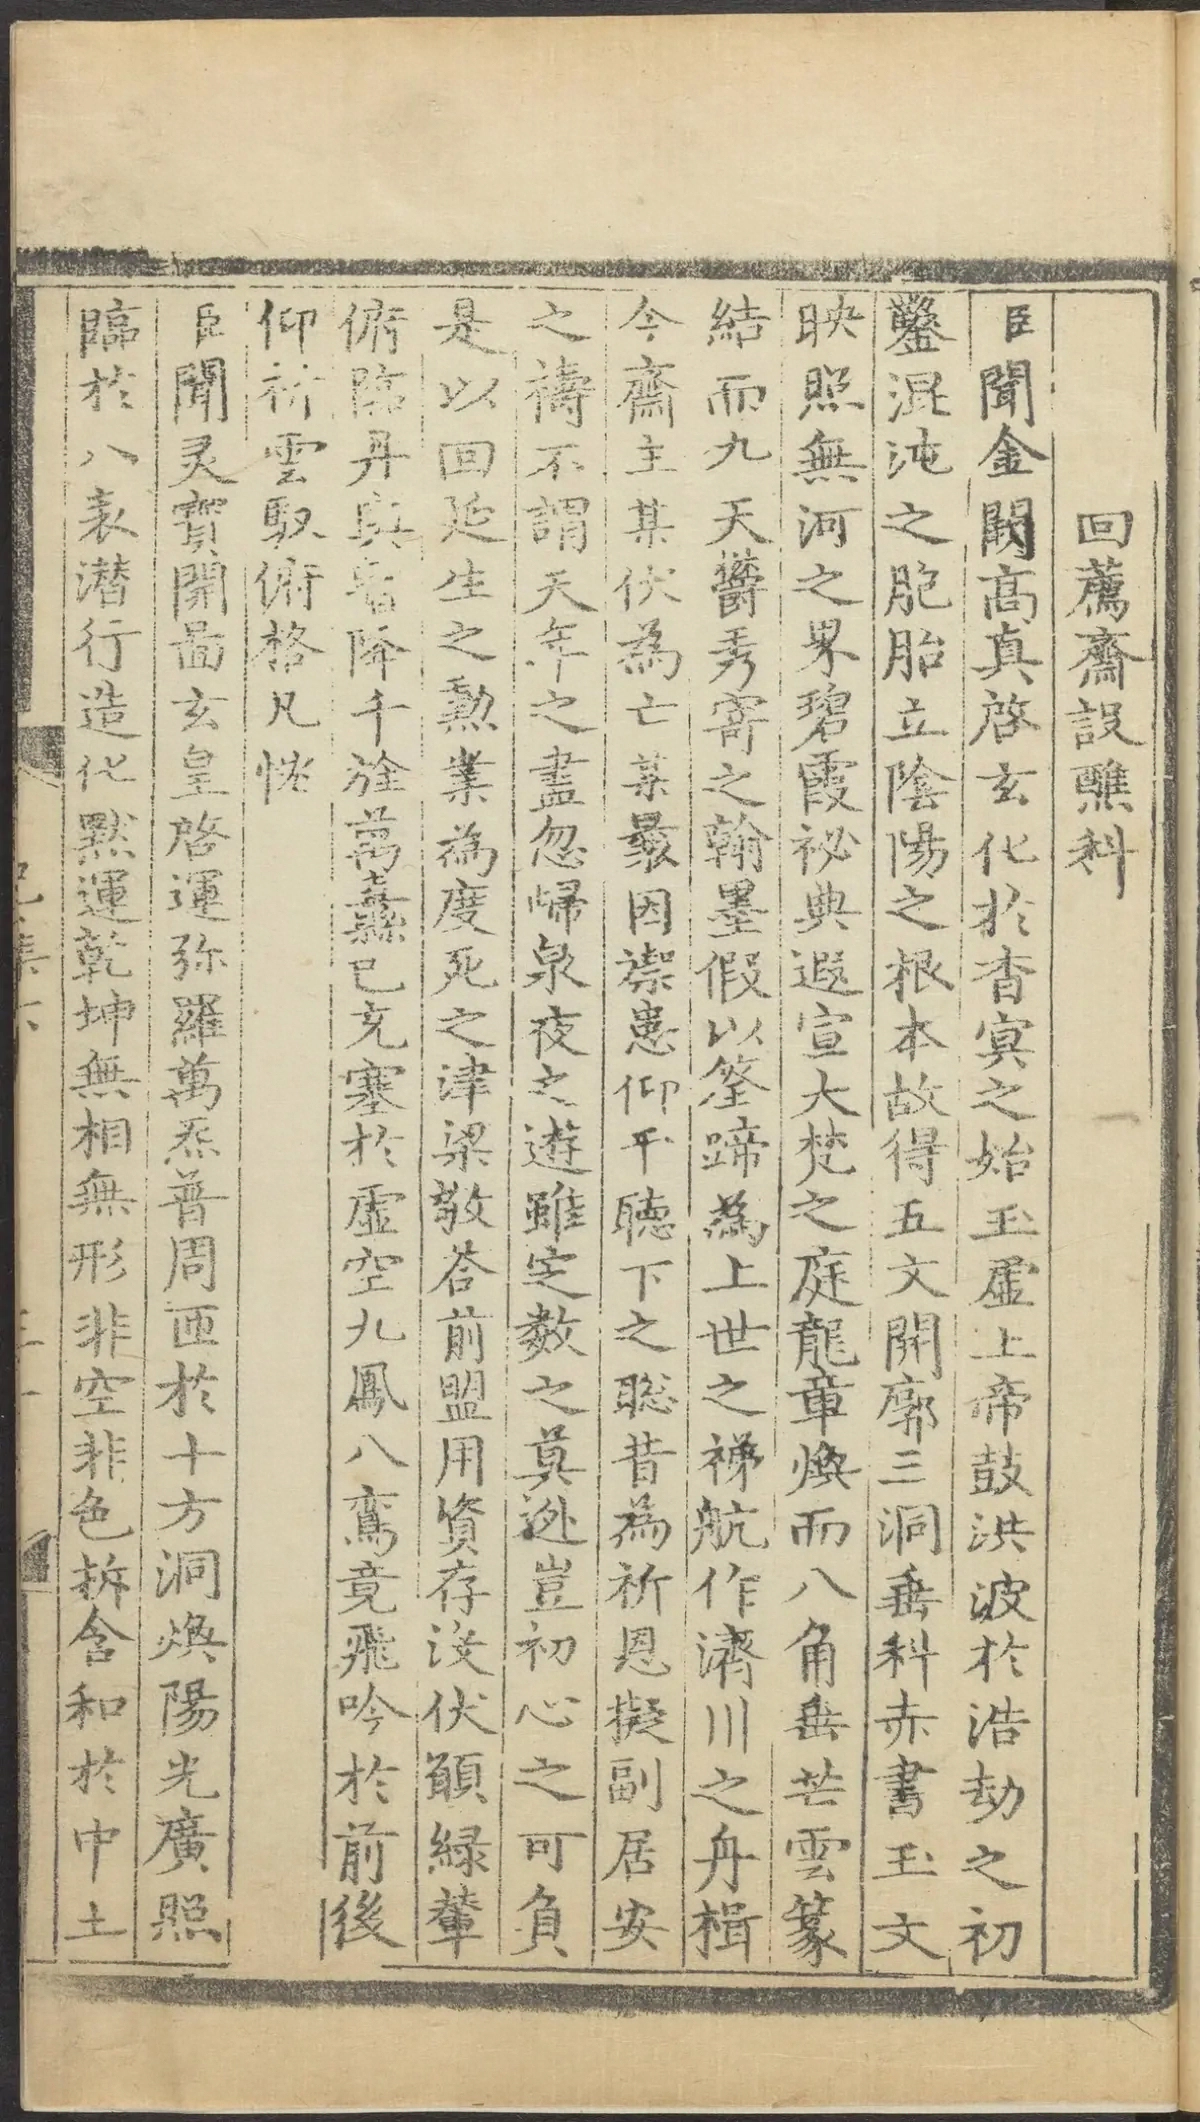 回薦齋設醮科
臣聞金闕高真啓玄化於杳冥之始玉虛上帝鼓洪波於浩劫之初
鑿混沌之胞胎立陰陽之根本故得五文開廓三洞垂科赤書玉文
映照無河之界碧霞祕典遐宣大梵之庭龍章煥而八角垂芒雲篆
結而九天欝秀寄之翰墨假以筌蹄為上世之梯航作濟川之舟楫
今齋主某伏為亡某㝡因禦患仰干聽下之聡昔為祈恩擬副居安
之禱不謂天年之盡忽歸泉夜之遊雖定数之莫迯豈初心之可負
是以回延生之勲業為度死之津梁敬荅前盟用資存没伏願緑輦
俯臨丹輿暫降千旌萬纛已充塞於虛空九鳳八鸞竟飛吟於前後
仰祈雲馭俯格凡悰
臣聞灵寳開啚玄皇啓運弥羅萬炁普周匝於十方洞煥陽光廣照
臨於八表潜行造化默運乾坤無相無形非空非色拆含和於中土